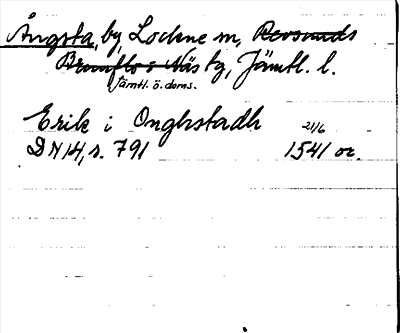 Ångsta, by, Lockne sn, Revsunds
Brunflo o. Näs tg, Jämtl. l.
Jämtl. ö. doms.
Erik i Onghstadh 21/6
DN 14, s. 791 1541 or.